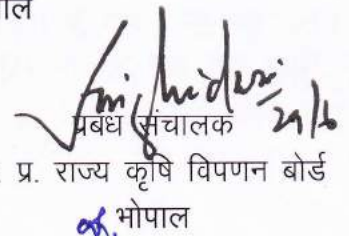 ाल
29/6
प्रबंध संचालक
प्र. राज्य कृषि विपणन बोर्ड
भोपाल